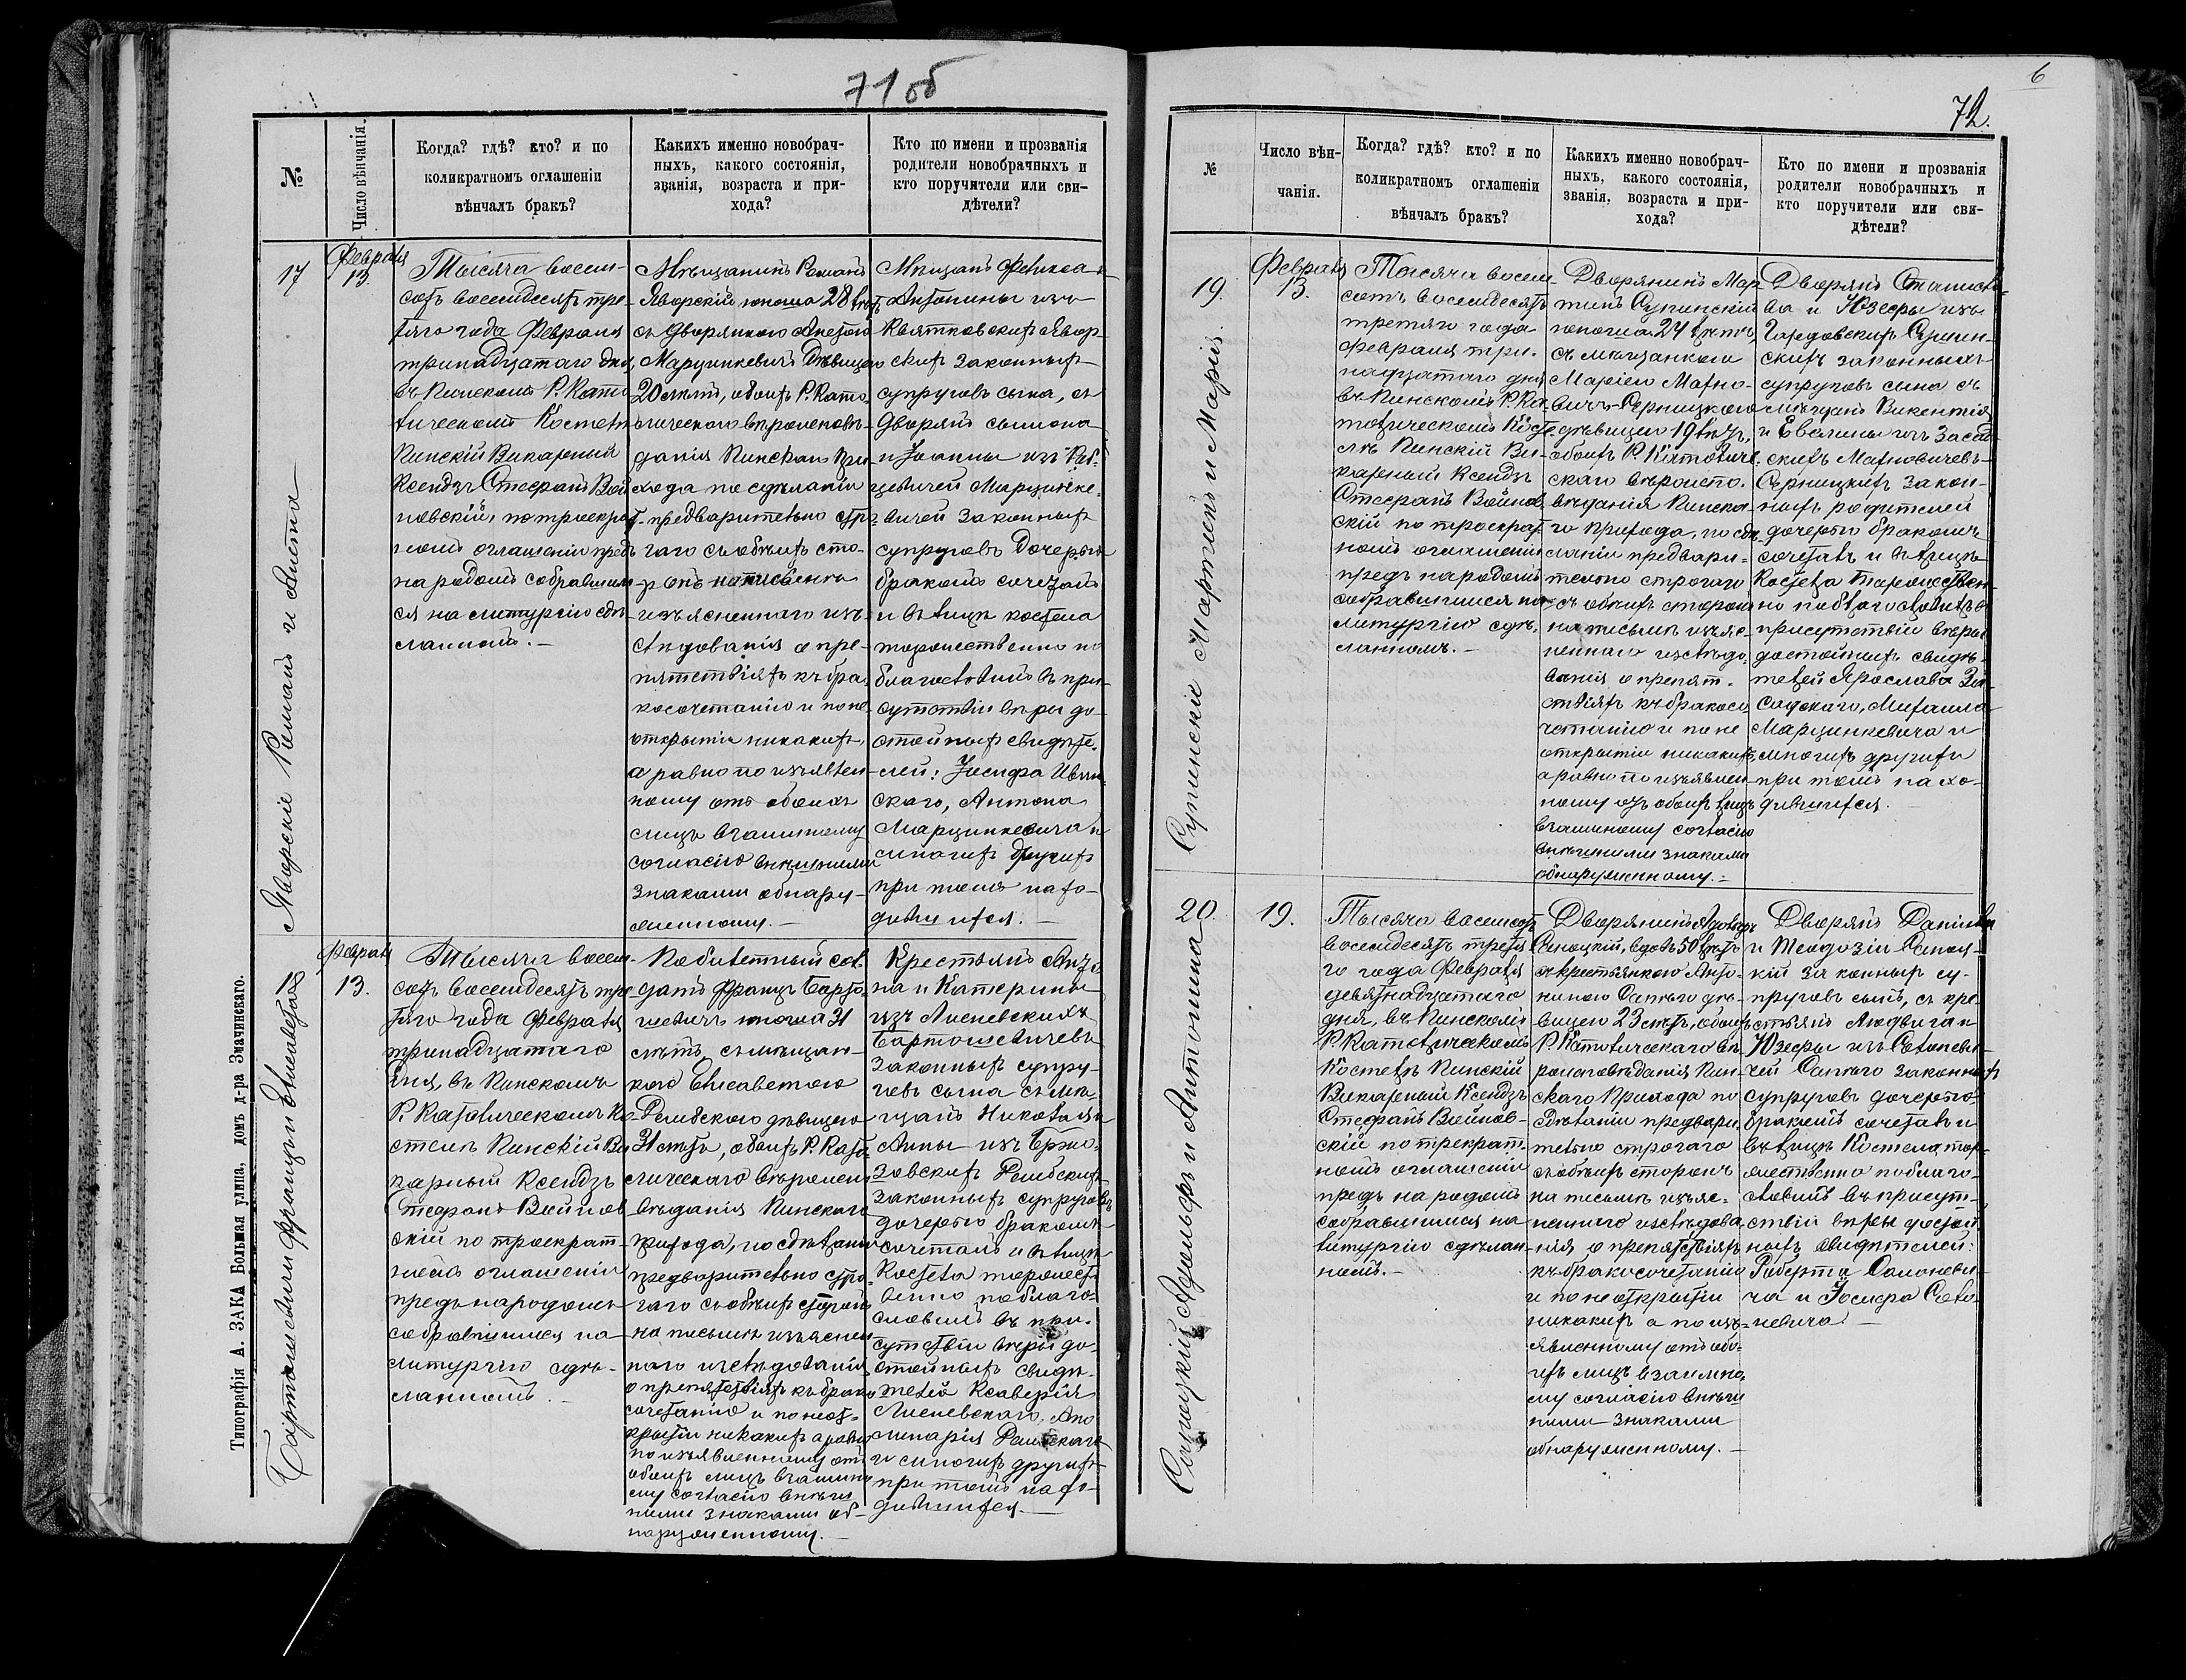 71 об
№
Число вѣнчанія.
Когда? гдѣ? кто? и по
коликратномъ оглашеніи
вѣнчалъ бракъ?
Какихъ именно новобрач-
ныхъ, какого состоянія,
званія, возраста и при-
хода?
Кто по имени и прозванія
родители новобрачныхъ и
кто поручители или сви-
дѣтели?
17
Февраля
13.
Яворскіе Романъ и Анета
Тысяча восем-
сотъ восемдесятъ тре-
тяго года Февраля
тринадцатаго дня,
въ Пинскомъ Р. Като
лическомъ Костелѣ
Пинскій Викарный
Ксендзъ Стефанъ Вой
новскій, по троекрат-
номъ оглашеніи предъ
народомъ собравшим
ся на литургію сдѣ-
ланномъ.-
Мѣщанинъ Романъ
Яворскій юноша 28 лѣтъ
съ дворянкою Анетою
Марцинкевичъ дѣвицею
20 лѣтъ, обоихъ Р. Като-
лическаго вѣроисповѣ-
данія Пинскаго При
хода по сдѣланіи
предварительно стро-
гаго съ обѣихъ сто-
ронъ на письмѣ
изъясненнаго изъ-
слѣдованія о пре-
пятствіяхъ къ бра-
косочетанію и по не
открытіи никакихъ,
а равно по изъявлен
ному отъ обоихъ
лицъ взаимному
согласію внѣшними
знаками обнару-
женному.-
Мѣщанъ Феликса
и Антонины изъ
Квятковскихъ Явор-
скихъ законныхъ
супруговъ сына, съ
Дворянъ
и Іоанны изъ
Марцинке-
вичей законныхъ
супруговъ дочерью
бракомъ сочеталъ
и въ лицѣ костела
торжественно по
благословилъ въ при
сутствіи вѣры до-
стойныхъ свидѣте-
лей: Іосифа
Антона
Марцинкевича и
многихъ другихъ
при томъ нахо-
дившихся.-
Типографія А. ЗАКА Большая улица, домъ д-ра Значинскаго.
Февраля
13.
Бартошевичи Францъ и Елисавета
Тысяча восем-
сотъ восемдесятъ тре
тяго года Февраля
тринадцатаго
дня, въ Пинскомъ
Р. Католическомъ Ко
стелѣ Пинскій Ви
карный Ксендзъ
Стефанъ Войнов
скій по троекрат-
номъ оглашеніи
предъ народомъ
собравшимся на
литургію сдѣ-
ланномъ.-
сол-
датъ Францъ Барто
шевичъ юноша 31
лѣтъ съ мѣщан-
кою Елисаветою
дѣвицею
31 лѣтъ, обоихъ Р. Като-
лическаго вѣроиспо
вѣданія Пинскаго
Прихода, по сдѣланіи
предварительно стро-
гаго съ обѣихъ сторонъ
на письмѣ изъяснен
наго изслѣдованія
о препятствіяхъ къ брако
сочетанію и по неот-
крытіи никакихъ а равно
по изъявленному отъ
обоихъ лицъ взаимно
му согласію внѣш
ними знаками об-
наруженному.-
Крестьянъ Анто
на и Катерины
изъ Лисневскихъ
Бартошевичевъ
законныхъ супру-
говъ сына съ мѣ-
щанъ Николая и
Анны изъ Бржо-
зовскихъ
законныхъ супруговъ
дочерью бракомъ
сочеталъ и въ лицѣ
Костела торжест
венно поблаго-
словилъ въ при-
сутствіи вѣры до-
стойныхъ свидѣ-
телей Ксаверія
Лисневскаго, Апо
линарія
и многихъ другихъ
при томъ нахо-
дившихся.-
6
72.
№
Число вѣн-
чанія.
Когда? гдѣ? кто? и по
коликратномъ оглашеніи
вѣнчалъ бракъ?
Какихъ именно новобрач-
ныхъ, какого состоянія,
званія, возраста и при-
хода?
Кто по имени и прозванія
родители новобрачныхъ и
кто поручители или сви-
дѣтели?
19.
Февраля
13.
Сушинскіе Мартинъ и Марія.
Тысяча восем
сотъ восемдесятъ
третяго года
Февраля три-
надцатаго дня
въ Пинскомъ Р. Ка
толическомъ Косте-
лѣ Пинскій Ви-
карный Ксендзъ
Стефанъ Войнов
скій по троекрат-
номъ оглашеніи
предъ народомъ
собравшимся на
литургію сдѣ-
ланномъ.-
Дворянинъ Мар
тинъ Сушинскій
юноша 24 лѣтъ,
съ мѣщанкою
Маріею Махно-
вичъ-Серницкою
дѣвицею 19 лѣтъ,
обоихъ Р. Католиче-
скаго вѣроиспо-
вѣданія Пинска
го Прихода, по сдѣ
ланіи предвари-
тельно строгаго
съ обѣихъ сторонъ
на письмѣ изъяс-
неннаго изслѣдо-
ванія о препят-
ствіяхъ къ бракосо
четанію и по не
открытіи никакихъ,
а равно по изъявлен
ному отъ обоихъ лицъ
взаимному согласію
внѣшними знаками
обнаруженному.-
Дворянъ Станисла-
ва и Юзефы изъ
Сушин-
скихъ законныхъ
супруговъ сына съ
мѣщанъ Викентія
и Эвелины изъ
Махновичевъ-
Серницкихъ закон-
ныхъ родителей
дочерью бракомъ
сочеталъ и въ лицѣ
Костела торжествен
но поблагословилъ въ
присутствіи вѣры
достойныхъ свидѣ-
телей Ярослава
Михаила
Марцинкевича и
многихъ другихъ
при томъ нахо-
дившихся.-
20
19.
Сапоцкій Адольфъ и Антонина
Тысяча восемсотъ
восемдесятъ третя
го года Февраля
девятнадцатаго
дня, въ Пинскомъ
Р. Католическомъ
Костелѣ Пинскій
Викарный Ксендзъ
Стефанъ Войнов-
скій по трекрат-
номъ оглашеніи
предъ народомъ
собравшимся на
литургію сдѣлан-
номъ.-
Дворянинъ Адольфъ
вдовъ 50 лѣтъ
съ крестьянкою Анто-
ниною дѣ-
вицею 23 лѣтъ, обоихъ
Р. Католическаго вѣ-
роисповѣданія Пин-
скаго Прихода по
сдѣланіи предвари-
тельно строгаго
съ обѣихъ сторонъ
на письмѣ изъяс-
неннаго изслѣдова-
нія о препятствіяхъ
къ бракосочетанію
и по неоткрытіи
никакихъ а по изъ-
явленному отъ обо-
ихъ лицъ взаимно
му согласію внѣш
ними знаками
обнаруженному.-
Дворянъ
и Теодозіи
законныхъ су-
пруговъ сынъ, съ кре-
стьянъ Людвига и
Юзефы изъ
законныхъ
супруговъ дочерью
бракомъ сочеталъ и
въ лицѣ Костела тор-
жественно поблаго-
словилъ въ присут-
ствіи вѣры достой
ныхъ свидѣтелей:
Роберта
и Іосифа